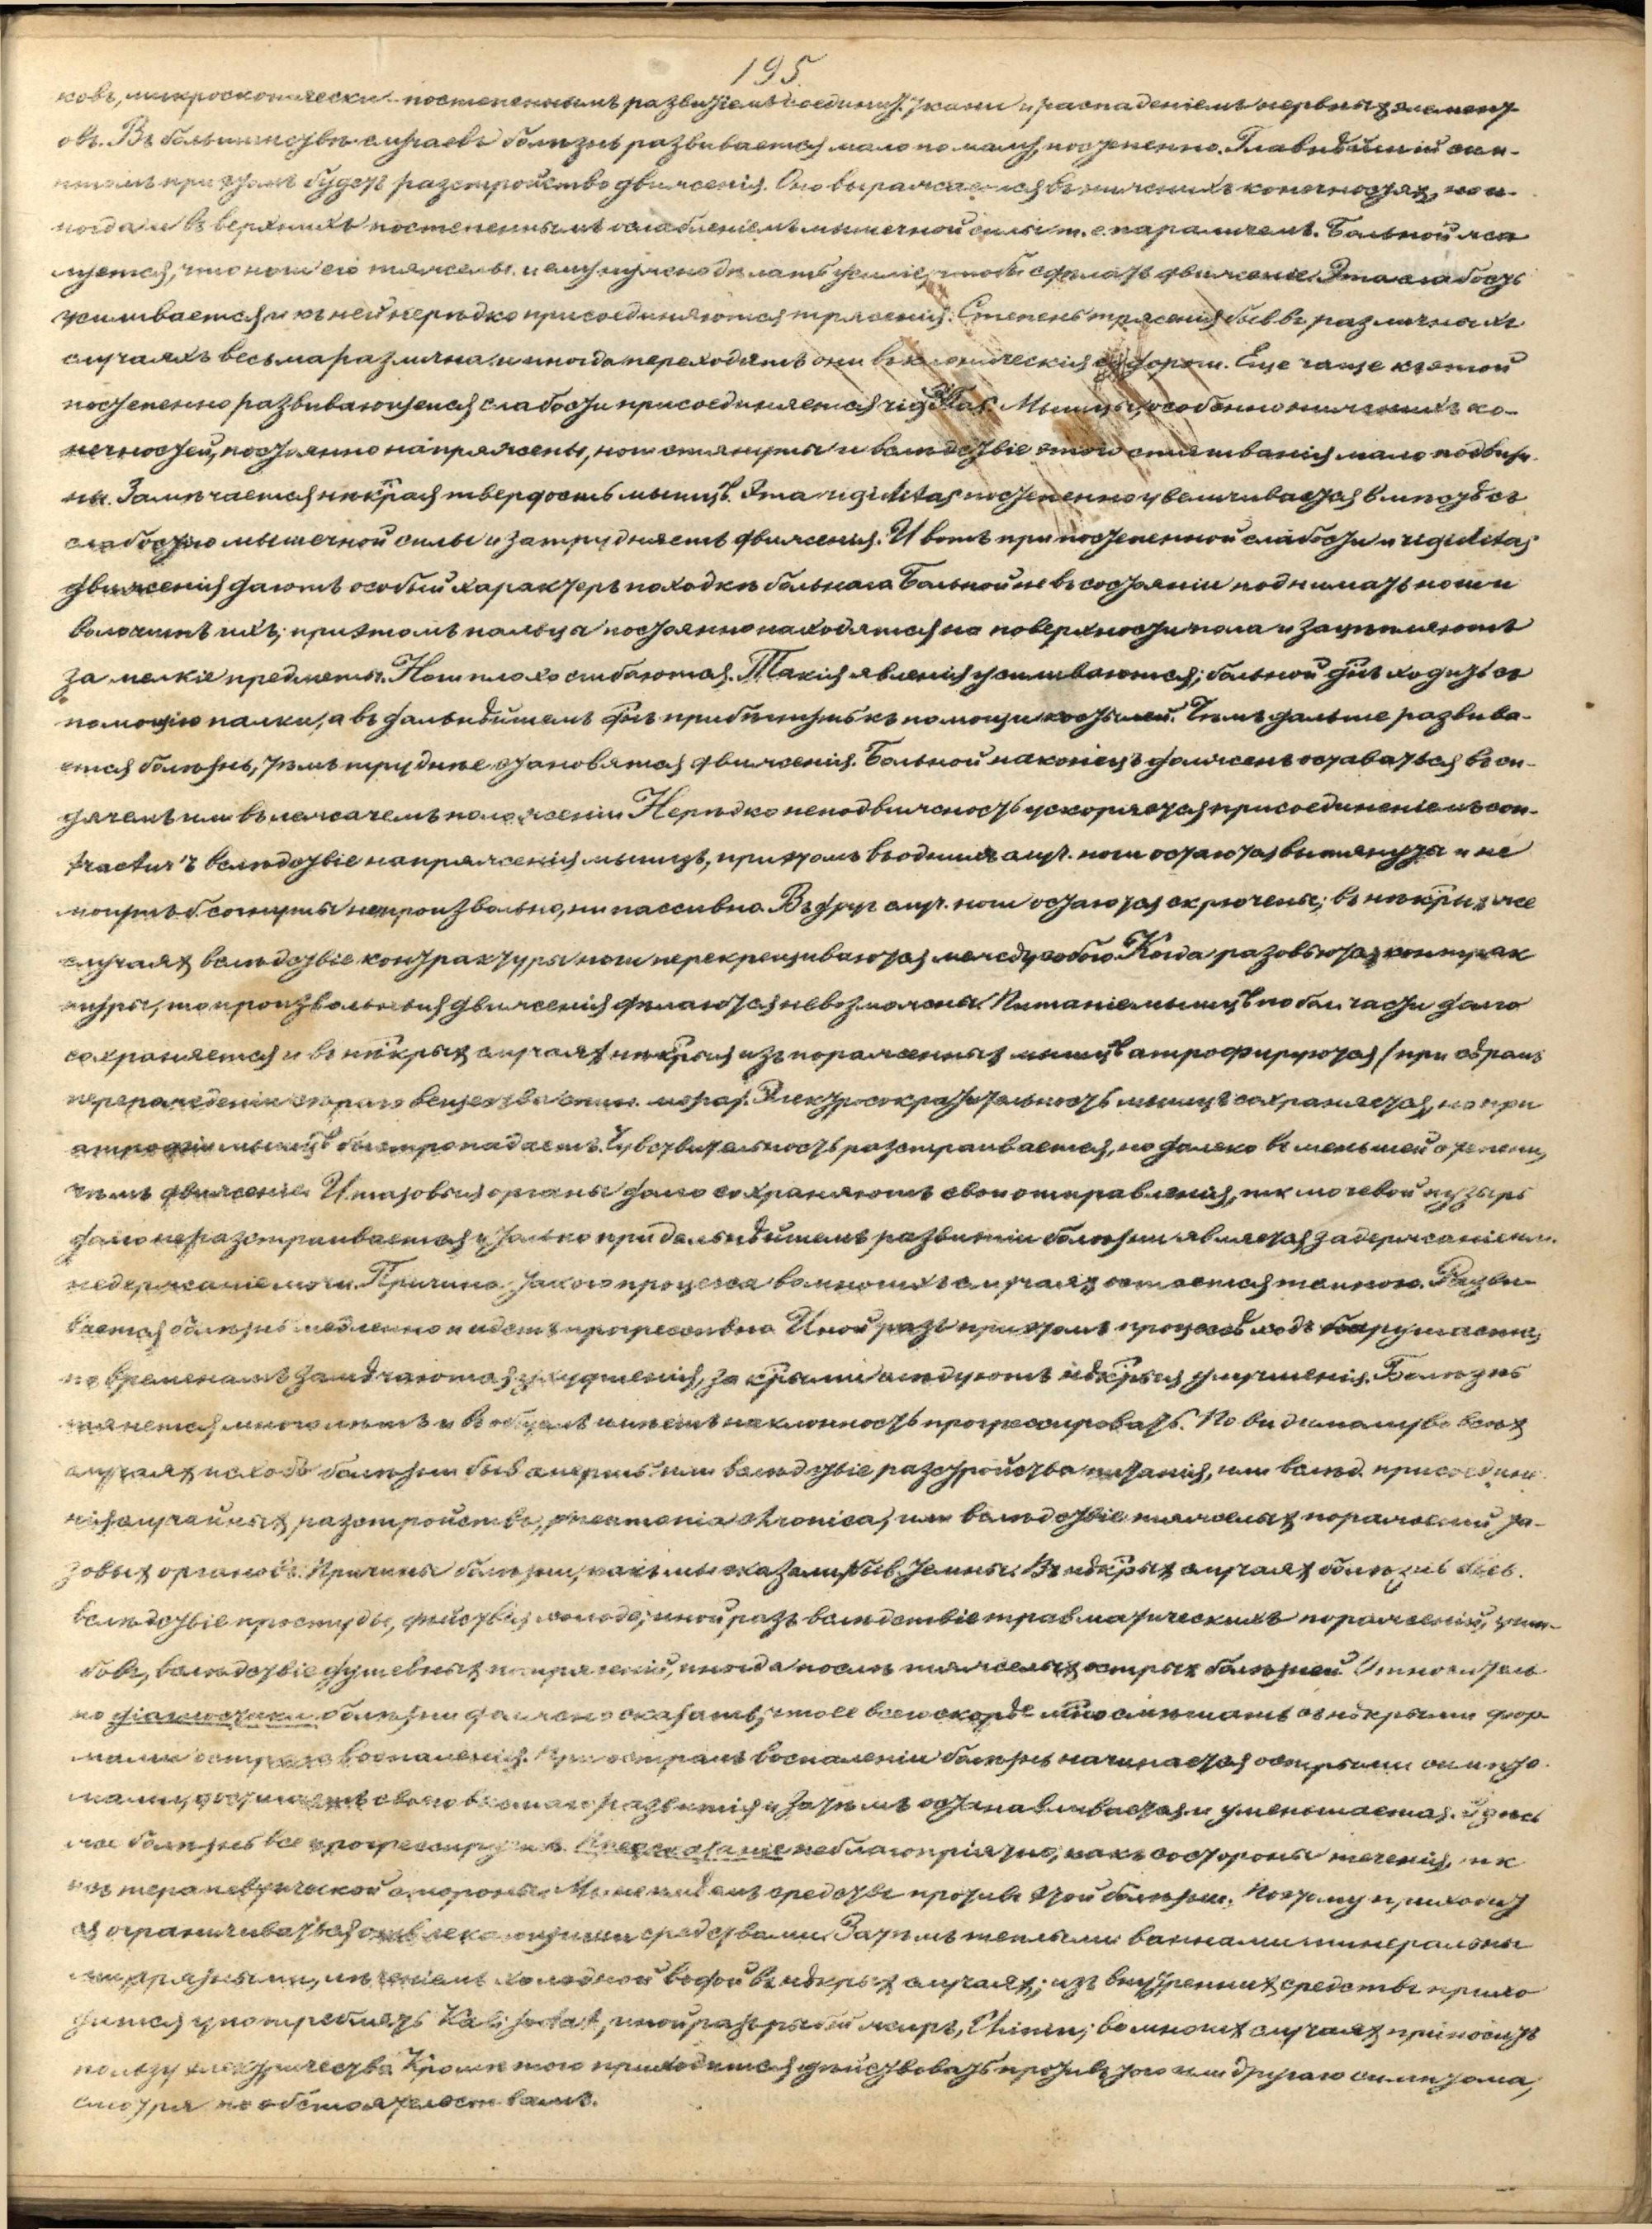 195.
ковъ, микроскопически постепеннымъ развитіемъ соединит. ткани и распаденіемъ нервныхъ элемент
овъ. Въ большинствѣ случаевъ болѣзнь развивается мало по малу, постепенно. Главнѣйшій сим-
птомъ при этомъ будетъ разстройство движенія. Оно выражается въ нижнихъ конечностяхъ, но и-
ногда и въ верхнихъ постепеннымъ ослабленіемъ мышечной силы т. е. параличемъ. Больной жа
луется, что ноги его тяжелы и ему нужно дѣлать усиліе, чтобы сдѣлать движеніе. Эта слабость
усиливается и къ ней нерѣдко присоединяются трясенія. Степень трясенія быв. въ различныхъ
случаяхъ весьма различна и иногда переходятъ они въ клоническія судороги. Еще чаще къ этой
постепенно развивающейся слабости присоединяется rigiditas. Мышцы, особенно нижнихъ ко-
нечностей, постоянно напряжены, ноги стянуты и вслѣдствіе этого стягиванія мало подвиж
ны. Замѣчается нѣкрая твердость мышцъ. Эта rigiditas постепенно увеличивается вмѣстѣ съ
слабостію мышечной силы и затрудняетъ движенія. И вотъ при постепенной слабости и rigiditas
движенія даютъ особый характеръ походкѣ больнаго. Больной не въ состояніи поднимать ноги и
волочитъ ихъ; при этомъ пальцы постоянно находятся на поверхности пола и зацѣпляютъ
за мелкіе предметы. Ноги плохо сгибаются. Такія явленія усиливаются; больной дѣ ходить съ
помощію палки, а въ дальнѣйшемъ дѣ прибѣгнуть къ помощи костылей. Чѣмъ дальше развива-
ется болѣзнь, тѣмъ труднѣе становятся движенія. Больной наконецъ долженъ оставаться въ си-
дячемъ или въ лежачемъ положеніи. Нерѣдко неподвижность ускоряется присоединеніемъ con-
tractur'ъ вслѣдствіе напряженія мышцъ, при этомъ въ однихъ случ. ноги остаются вытянуты и не
могутъ б. согнуты ни произвольно, ни пассивно. Въ друг. случ. ноги остаются скрючены; въ нѣкрыхъ же
случаяхъ вслѣдствіе контрактуры ноги перекрещиваются между собою. Когда разовьются контрак
туры, то произвольныя движенія дѣлаются невозможны. Питаніе мышцъ по бол. части долго
сохраняется и въ нѣкрыхъ случаяхъ нѣкрыя изъ пораженныхъ мышцъ атрофируются (при
перерожденіи сѣраго вещества спин. мозга). Электросократительность мышцъ сохраняется, но при
атрофіи мышцъ быстро падаетъ. Чувствительность разстраивается, но далеко въ меньшей степени,
чѣмъ движеніе. И тазовые органы долго сохраняютъ свои отправленія, тк мочевой пузырь
долго не разстраивается и только при дальнѣйшемъ развитіи болѣзни является задержаніе или
недержаніе мочи. Причина такого процесса во многихъ случаяхъ остается темною. Разви
вается болѣзнь медленно и идетъ прогрессивно. Иной разъ при этомъ процессѣ ходъ
по временамъ замѣчаются ухудшенія, за крыми слѣдуютъ нѣкрыя улучшенія. Болѣзнь
тянется много лѣтъ и вообще имѣетъ наклонность прогрессировать. По видимому во всѣхъ
случаяхъ исходъ болѣзни быв. смерть или вслѣдствіе разстройства питанія, или вслѣд. присоедине
нія случайныхъ разстройствъ, pneumonia chronica, или вслѣдствіе тяжелыхъ пораженій та-
зовыхъ органовъ. Причины болѣзни, какъ мы сказали, быв. темны. Въ нѣкрыхъ случаяхъ болѣзнь быв.
вслѣдствіе простуды, дѣйствія холода; иной разъ вслѣдствіе травматическихъ пораженій, уши-
бовъ, вслѣдствіе душевныхъ напряженій, иногда послѣ тяжелыхъ острыхъ болѣзней. Относитель
но діагностики болѣзни должно сказать, что ее всего скорѣе можно смѣшать съ нѣкрыми фор
мами остраго воспаленія. При остромъ воспаленіи болѣзнь начинается острыми симпто
мами, достигаетъ своего развитія и затѣмъ останавливается и уменьшается. Здѣсь
же болѣзнь все прогрессируетъ. Предсказаніе неблагопріятно, какъ со стороны теченія, тк
и съ терапевтической стороны. Мы не имѣемъ средствъ противъ этой болѣзни. Поэтому приходит
ся ограничиваться отвлекающими средствами. Затѣмъ теплыми ваннами минеральны
ми, грязными, лѣченіемъ холодной водой въ нѣкрыхъ случаяхъ; изъ внутреннихъ средствъ прихо
дится употреблять Kali jodat, иной разъ рыбій жиръ, Chinin; во многихъ случаяхъ приноситъ
пользу электричество. Кромѣ того приходится дѣйствовать противъ того или другаго симптома,
смотря по обстоятельствамъ.